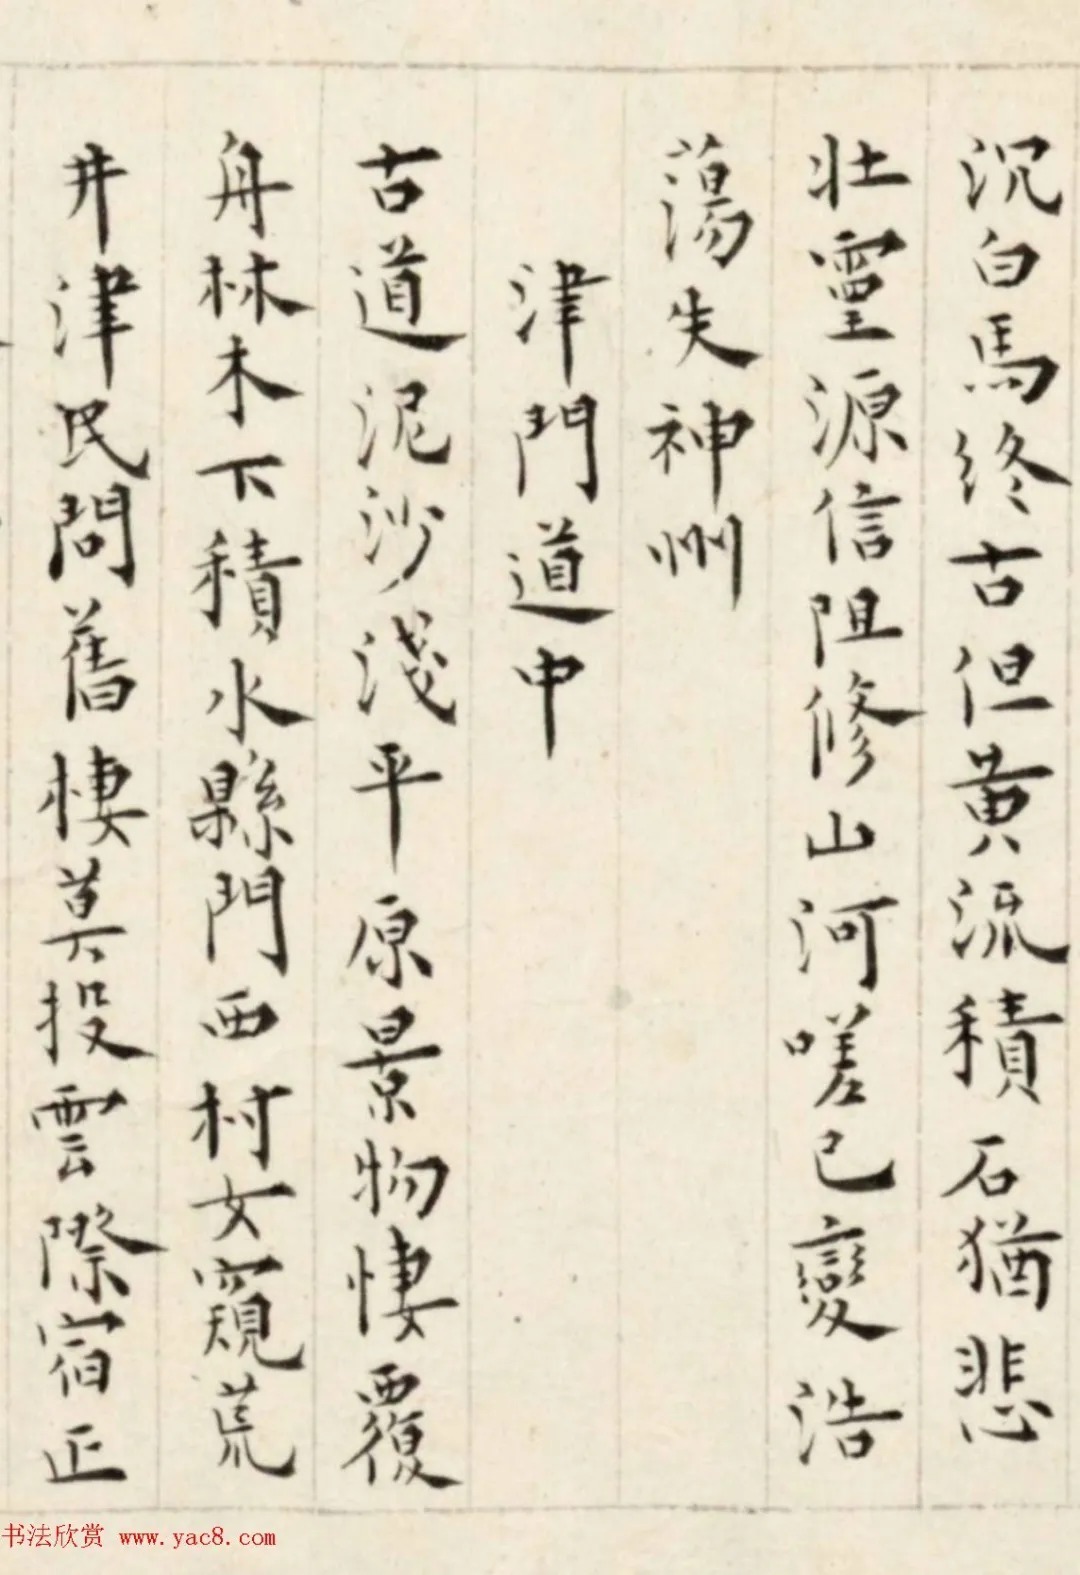 沉白馬終古但黄流積石猶悲
壮靈源信阻修山河嗟已變浩
蕩失神州
津門道中
古道泥沙淺平原景物悽覆
舟林木下積水縣門西村女窺荒
井津民問舊棲莫投雲際宿正
书法欣赏 www.yac8.com